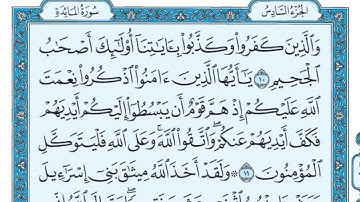 سُورَةُ المَائِدَةِ الجُزْءُ السَّادِسُ
وَالَّذِينَ كَفَرُوا وَكَذَّبُوا بِـَٔايَـٰتِنَآ أُو۟لَـٰٓئِكَ أَصْحَـٰبُ
الْجَحِيمِ ١٠ يَـٰٓأَيُّهَا الَّذِينَ ءَامَنُوا اذْكُرُوا نِعْمَتَ
اللَّهِ عَلَيْكُمْ إِذْ هَمَّ قَوْمٌ أَن يَبْسُطُوٓا إِلَيْكُمْ أَيْدِيَهُمْ
فَكَفَّ أَيْدِيَهُمْ عَنكُمْ ۖ وَاتَّقُوا اللَّهَ ۚ وَعَلَى اللَّهِ فَلْيَتَوَكَّلِ
الْمُؤْمِنُونَ ١١ ۞ وَلَقَدْ أَخَذَ اللَّهُ مِيثَـٰقَ بَنِىٓ إِسْرَٰٓءِيلَ